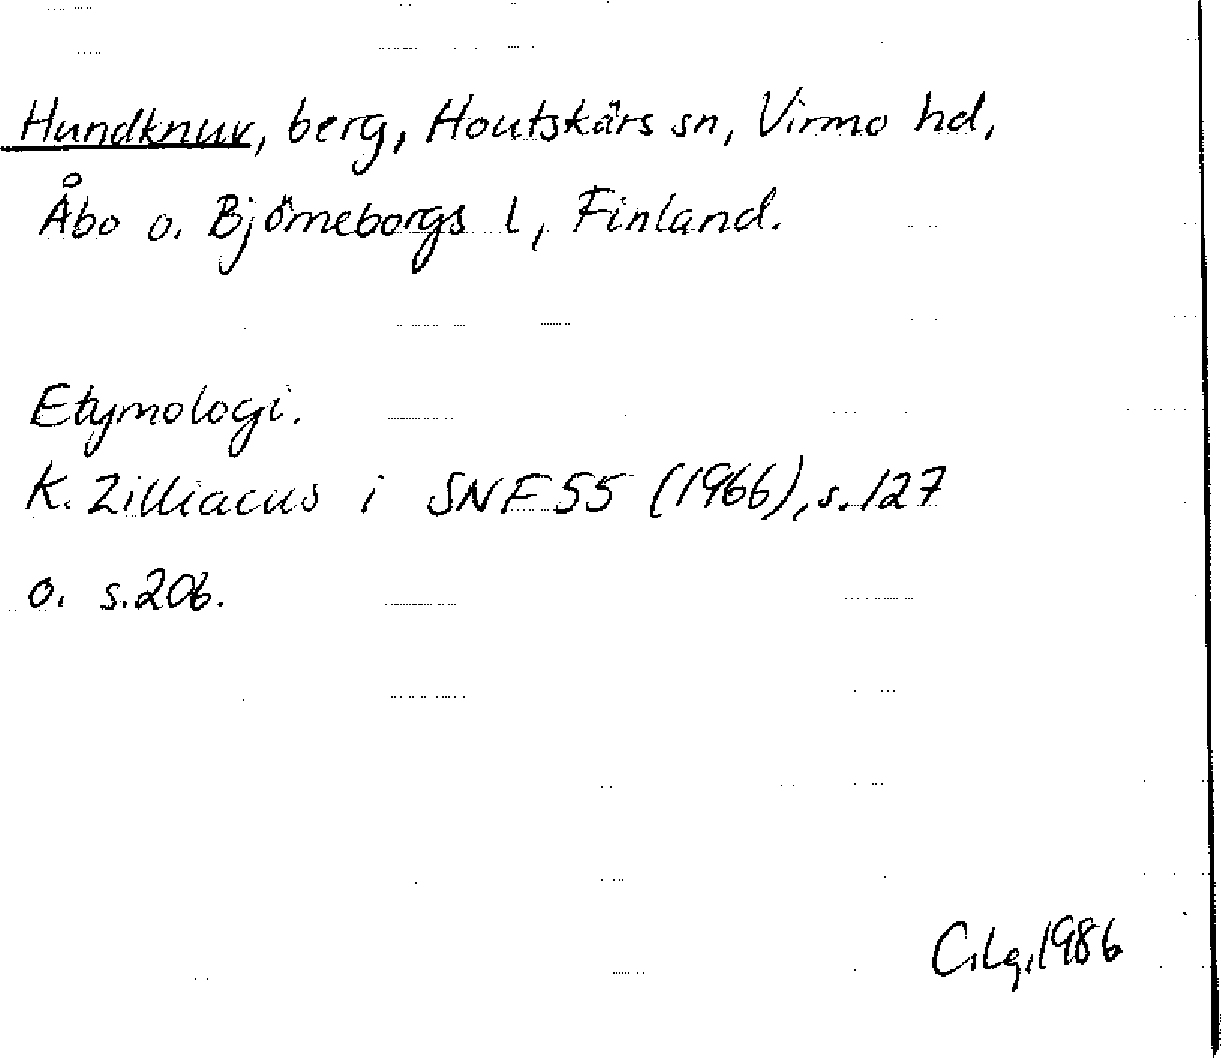 Hundknuv, berg, Houtskärs sn, Virmo hd,
Åbo o. Björneborgs l, Finland.
Etymologi.
K. Zilliacus i SNF 55 (1966), s. 127
o. s. 206.
C.Lg, 1986